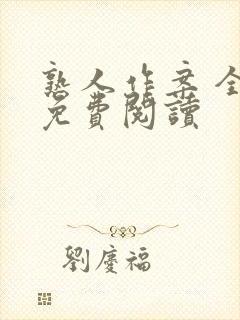 熟人作案全
免費閱讀
劉慶福